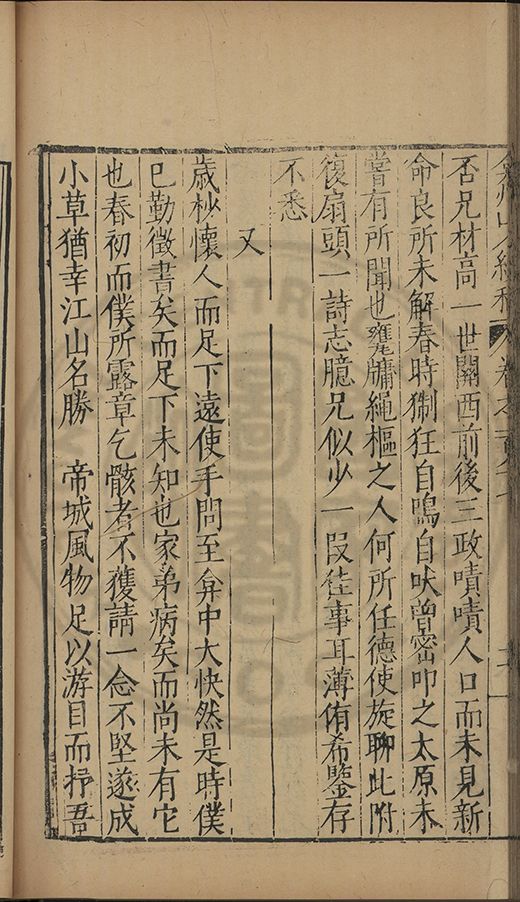 弇州山人續稿 卷之一百
否兄材高一世關西前後三政嘖嘖人口而未見新
命良所未解春時猘狂自鳴自吠曾密叩之太原未
嘗有所聞也甕牖繩樞之人何所任德使旋聊此附
復扇頭一詩志臆兄似少一段往事耳薄侑希鑒存
不悉
又
歲杪懷人而足下遠使手問至弇中大快然是時僕
已勤徵書矣而足下未知也家弟病矣而尚未有它
也春初而僕所露章乞骸者不獲請一念不堅遂成
小草猶幸江山名勝 帝城風物足以游目而抒吾